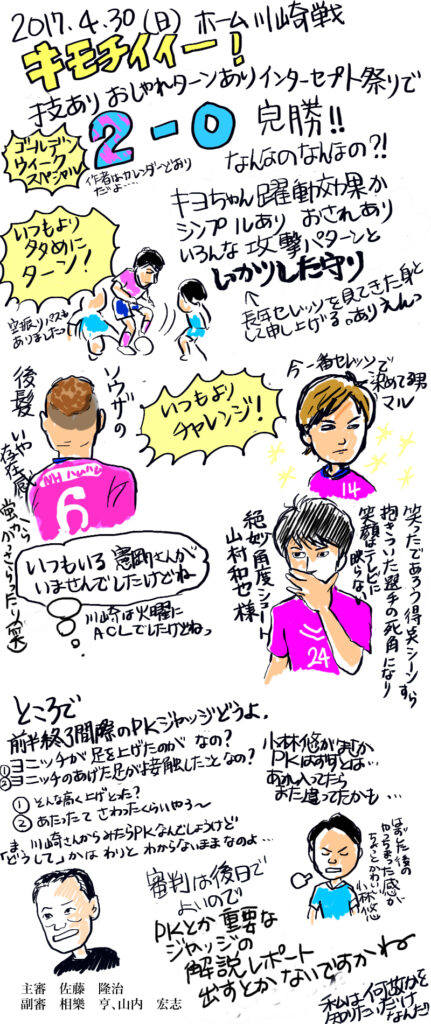 2017.4.30(日)ホーム川崎戦
キモチイイー!
技ありおしゃれターンありインターセプト祭りで
ゴールデン
ウィーク
スペシャル
2-0完勝!!
作者はカレンダーどおり
だよ…
なんなのなんなの?!
キヨちゃん躍動効果か
シンプルあり おされあり
いろんな攻撃パターンと
いかツした守り
←長年セレッソを見てきた身と
して申し上げる。ありえんっ
いつもより
多めに
ターン!
空振りミスも
ありましたっ
ソウザの
後髪
いや
存在感
いつもより
チャレンジ!
今一番セレッソで
決めてる男
マル
14
6
笑ったであろう得点シーンすら
抱きついた選手の死角になり
笑顔はテレビに
映らない
絶妙角度シュート
山村和也様
24
いつもいる憲剛さんが
いませんでしたけどね
川崎は火曜に
ACLでしたけどねっ
ところで
前半終了間際のPKジャッジどうよ.
①ヨニッチが足を上げたのが なの?
②ヨニッチのあげた足が接触したことなの?
① そんな高く上げとった?
② あたったて さわったくらいやろ〜
ま、川崎さんからみたらPKなんでしょうけど
「どうして」かは わりと わからないままなのよ…
小林悠がまさか
PKはずすとは…
あれ入ってたら
また違ってたかも…
はずした後の
やっちまった感が
ちょっとかわいい
小林悠
審判は後日で
よいので
PKとか重要な
ジャッジの
解説レポート
出すとかないですかね
主審 佐藤 隆治
副審 相樂 亨、山内 宏志
私は何故かを
知りたいだけ
なんだ